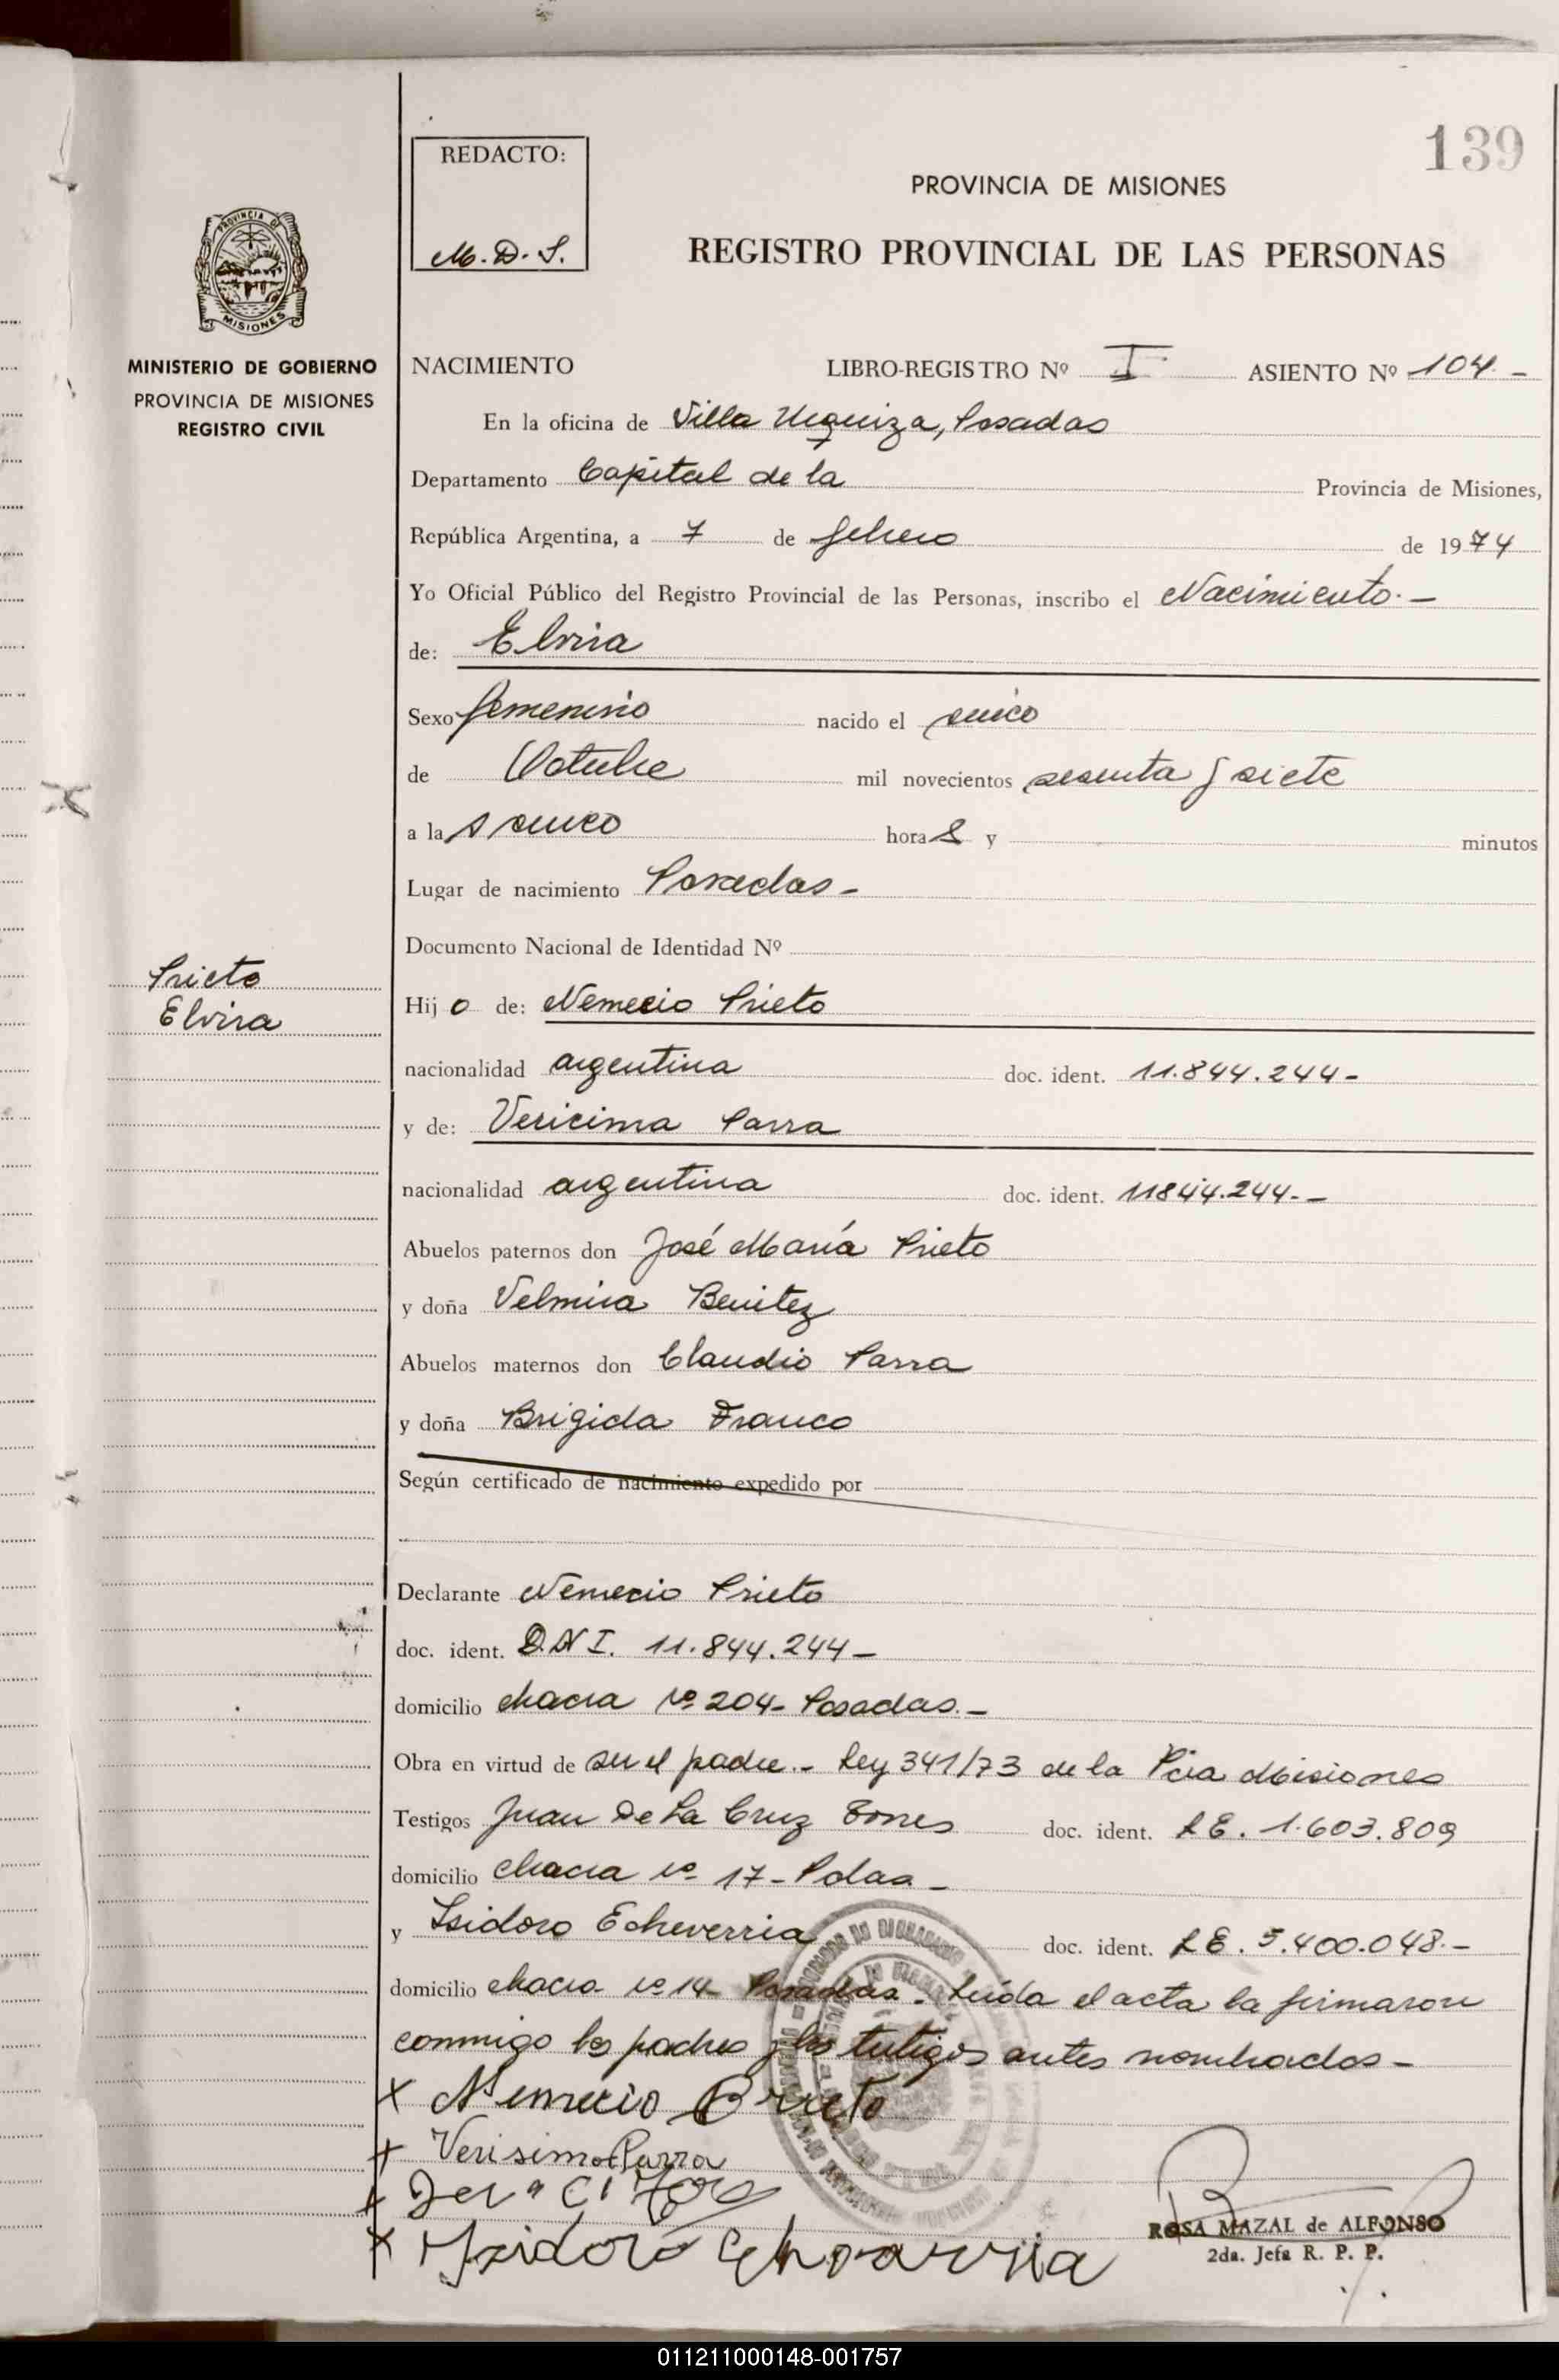 139
REDACTO:
M. D. S.
PROVINCIA DE MISIONES
REGISTRO PROVINCIAL DE LAS PERSONAS
PROVINCIA DE
MISIONES
MINISTERIO DE GOBIERNO
PROVINCIA DE MISIONES
REGISTRO CIVIL
NACIMIENTO LIBRO-REGISTRO Nº I ASIENTO Nº 104.-
En la oficina de Villa Urquiza, Posadas
Departamento Capital de la Provincia de Misiones,
República Argentina, a 7 de febrero de 1974
Yo Oficial Público del Registro Provincial de las Personas, inscribo el Nacimiento.-
de: Elvira
Sexo femenino nacido el cinco
de Octubre mil novecientos sesenta y siete
a las cinco horas y minutos
Lugar de nacimiento Posadas-
Documento Nacional de Identidad Nº
Prieto
Elvira
Hijo de: Nemecio Prieto
nacionalidad argentina doc. ident. 11.844.244-
y de: Vericima Parra
nacionalidad argentina doc. ident. 11844.244.-
Abuelos paternos don José María Prieto
y doña Velmira Benitez
Abuelos maternos don Claudio Parra
y doña Brigida Franco
Según certificado de nacimiento expedido por
Declarante Nemecio Prieto
doc. ident. D.N I. 11.844.244-
domicilio chacra Nº 204- Posadas.-
Obra en virtud de ser el padre.- Ley 341/73 de la Pcia Misiones
Testigos Juan De La Cruz Torres doc. ident. L E. 1.603.809
domicilio chacra Nº 17- Pdas-
y Isidoro Echeverria doc. ident. L E. 5.400.048.-
domicilio chacra Nº 14- Posadas. Leída el acta la firmaron
conmigo los padres y los testigos antes nombrados-
x Nemecio Prieto
+ Verisima Parra
x
x Izidoro
ROSA MAZAL de ALFONSO
2da. Jefa R. P. P.
011211000148-001757